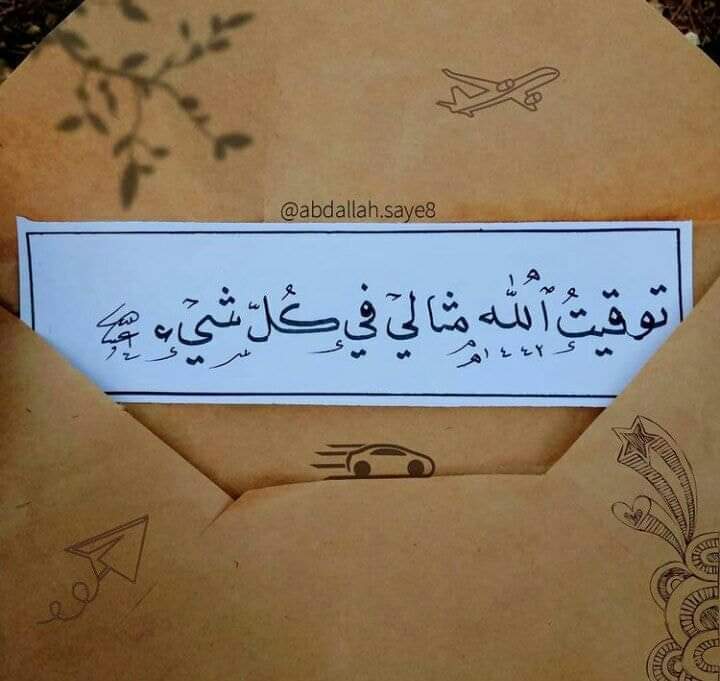 @abdallah.saye8
توقيتُ ٱللّٰه مثالي في كُلّ شيء
١٤٤٢هـ